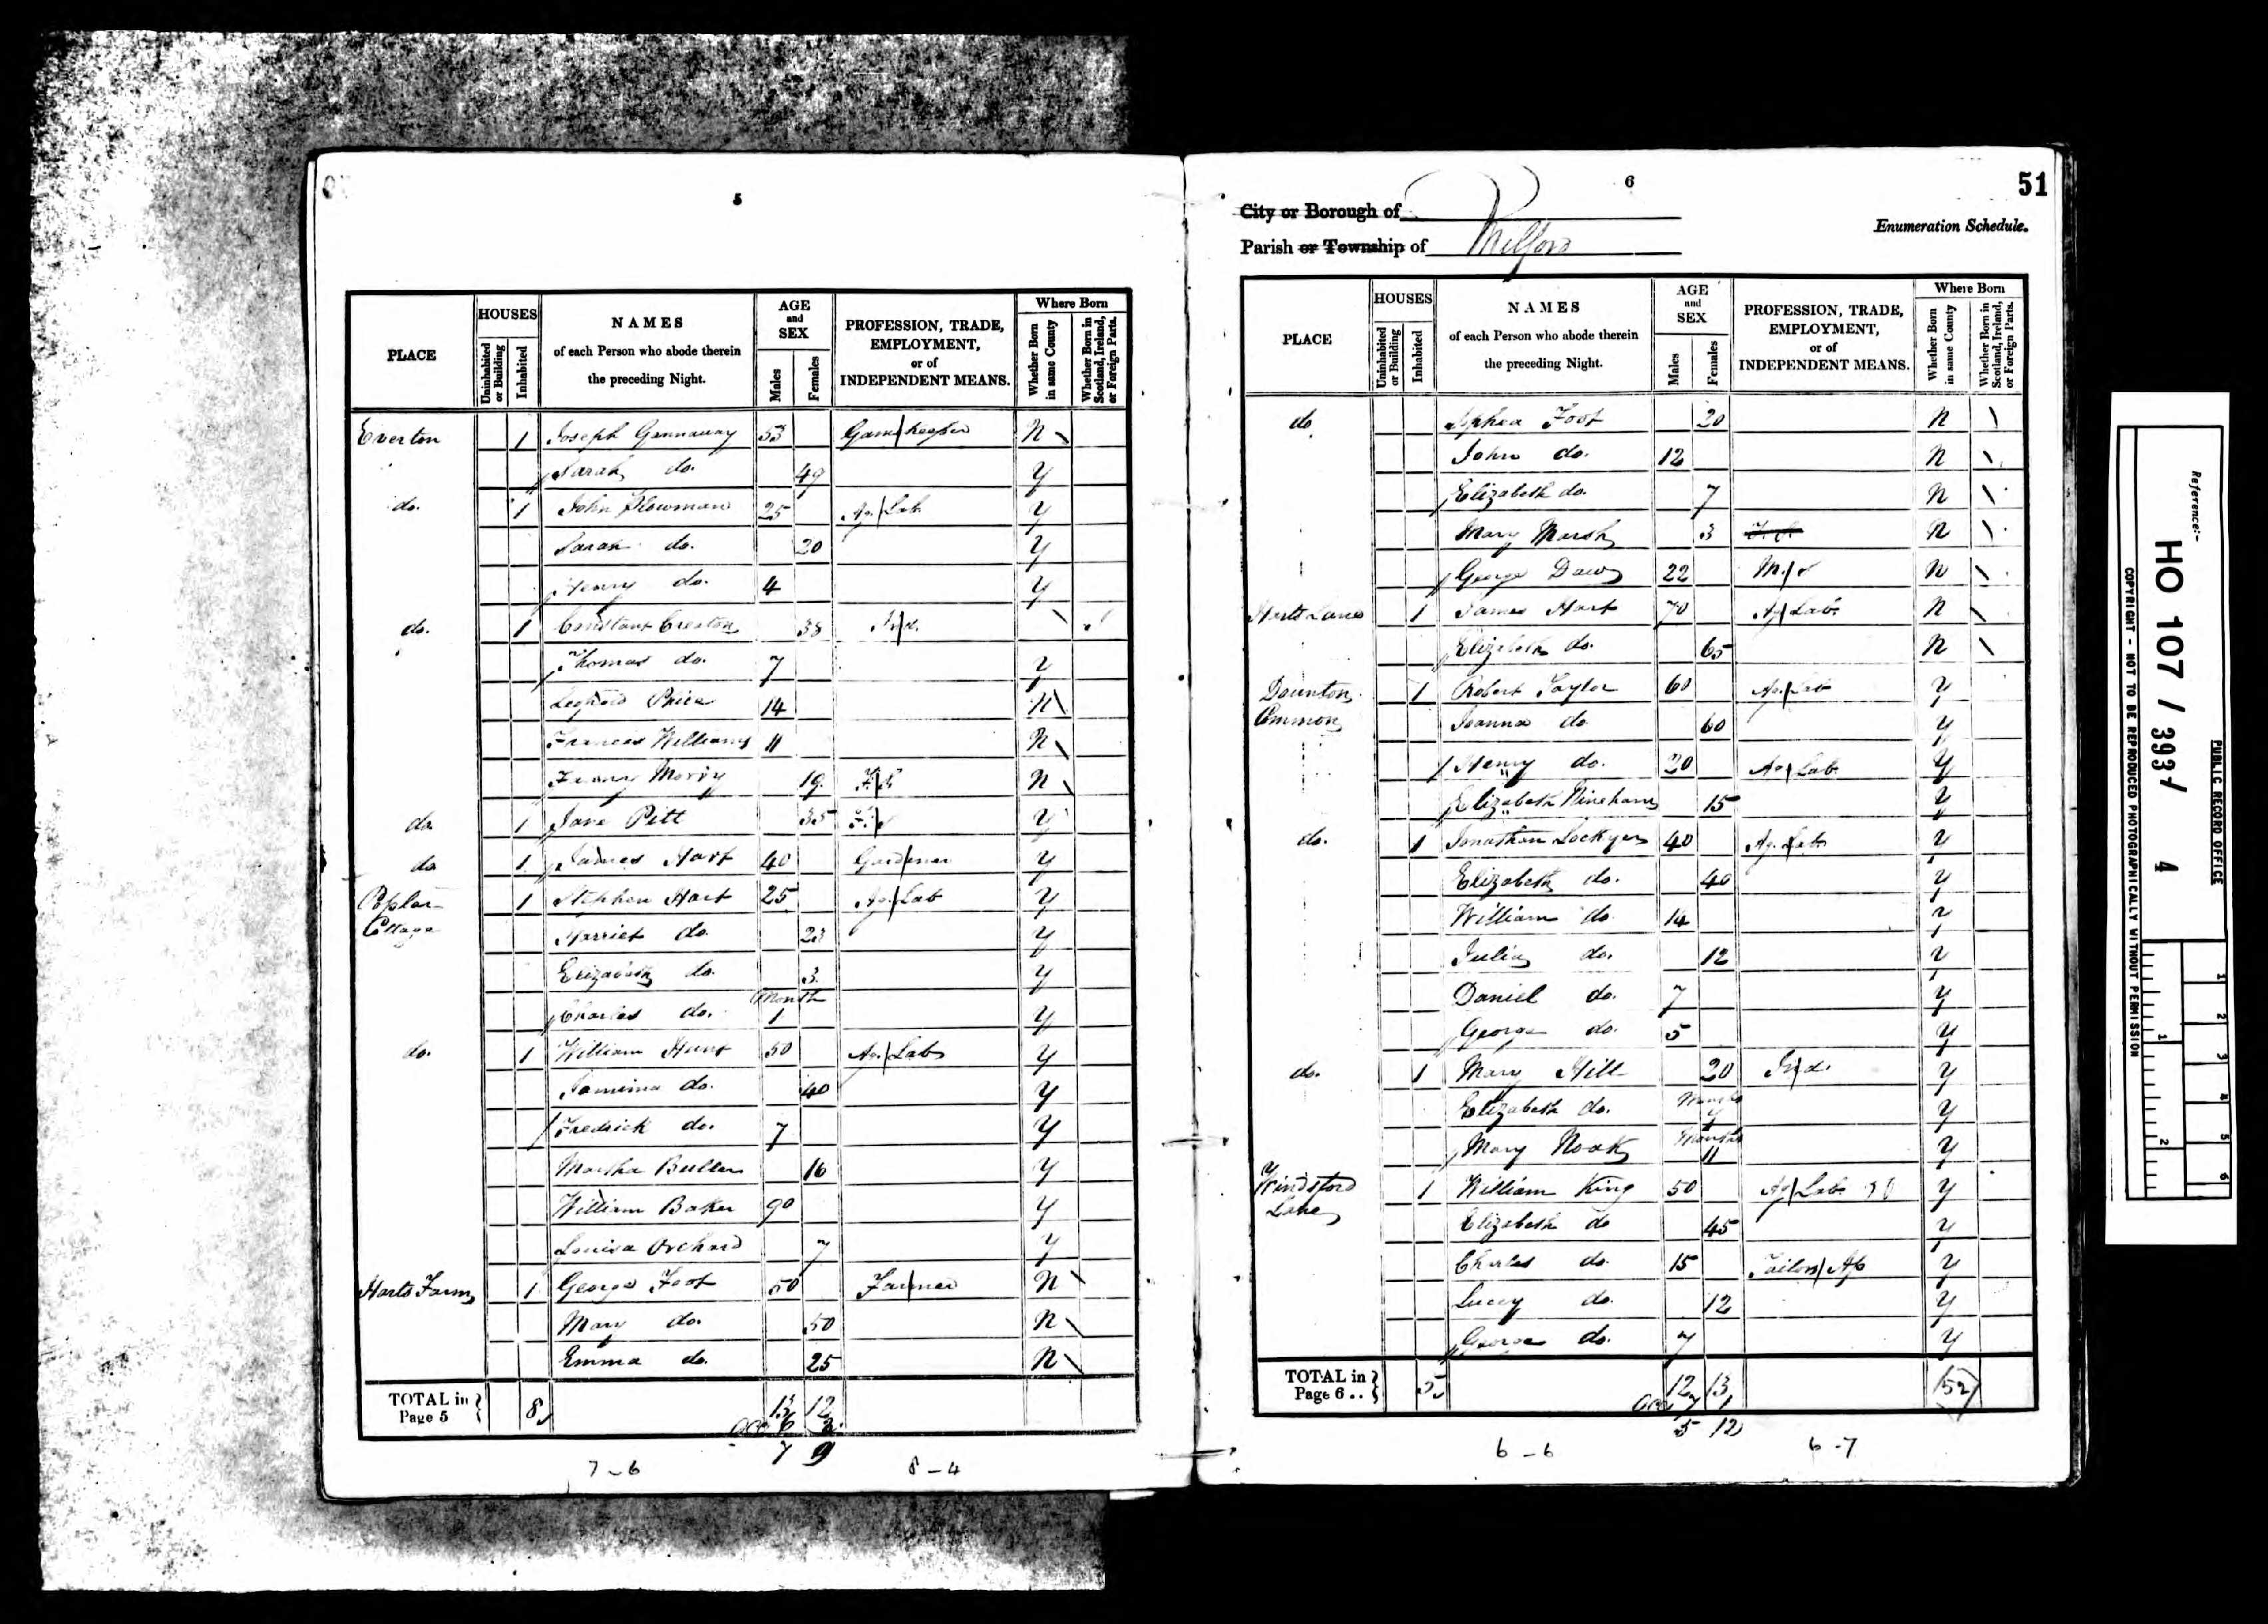 5
PLACE
HOUSES
Uninhabited or Building
Inhabited
NAMES
of each Person who abode therein
the preceding Night.
AGE
and
SEX
Males
Females
PROFESSION, TRADE,
EMPLOYMENT,
or of
INDEPENDENT MEANS.
Where Born
Whether Born in same County
Whether Born in Scotland, Ireland, or Foreign Parts.
Everton 1 Joseph 53 Game keeper N
Sarah do. 49 Y
do. 1 John Plowman 25 Ag. Lab Y
Sarah do. 20 Y
Henry do. 4 Y
do. 1 Constant 38 Ind.
Thomas do. 7 Y
Price 14 N
Francis Williams 11 N
19 F S N
do 1 Jane Pitt 35 F. S Y
do 1 James Hart 40 Gardener Y
Poplar 1 Stephen Hart 25 Ag. Lab Y
Cottage Harriet do. 23 Y
Elizabeth do. 3 Y
Month
Charles do. 1 Y
do. 1 William Hunt 50 Ag. Lab Y
Jamima do. 40 Y
Fredrick do. 7 Y
Martha Butler 16 Y
William Baker 90 Y
Louisa Orchard 7 Y
Harts Farm 1 George Foot 50 Farmer N
Mary do. 50 N
Emma do. 25 N
TOTAL in
Page 5 8 13 12
7 9
7-6 8-4
6
51
City or Borough of
Parish or Township of Milford
Enumeration Schedule.
PLACE
HOUSES
Uninhabited or Building
Inhabited
NAMES
of each Person who abode therein
the preceding Night.
AGE
and
SEX
Males
Females
PROFESSION, TRADE,
EMPLOYMENT,
or of
INDEPENDENT MEANS.
Where Born
Whether Born in same County
Whether Born in Scotland, Ireland, or Foreign Parts.
do Sophia Foot 20 N
John do. 12 N
Elizabeth do. 7 N
Mary Marsh 3 N
George Daw 22 M. S N
Harts Lane 1 James Hart 70 Ag Lab. N
Elizabeth do. 65 N
Downton 1 Robert Taylor 60 Ag. Lab Y
Common Joanna do 60 Y
Henry do. 20 Ag Lab. Y
Elizabeth Nineham 15 Y
do. 1 Jonathan Lockyer 40 Ag. Lab Y
Elizabeth do. 40 Y
William do 14 Y
Julia do. 12 Y
Daniel do. 7 Y
George do. 5 Y
do. 1 Mary Hill 20 Ind. Y
Elizabeth do. Months Y
Mary Noak Months 11 Y
Windsford 1 William King 50 Ag Lab. Y
Lane Elizabeth do 45 Y
Charles do. 15 Tailors Ap Y
Lucey do. 12 Y
George do. 7 Y
TOTAL in
Page 6 .. 5 12 13
5 12
6-6 6-7
Reference:-
HO 107 / 393 / 4
PUBLIC RECORD OFFICE
COPYRIGHT - NOT TO BE REPRODUCED PHOTOGRAPHICALLY WITHOUT PERMISSION
1 2 3 4 5 6
1 2